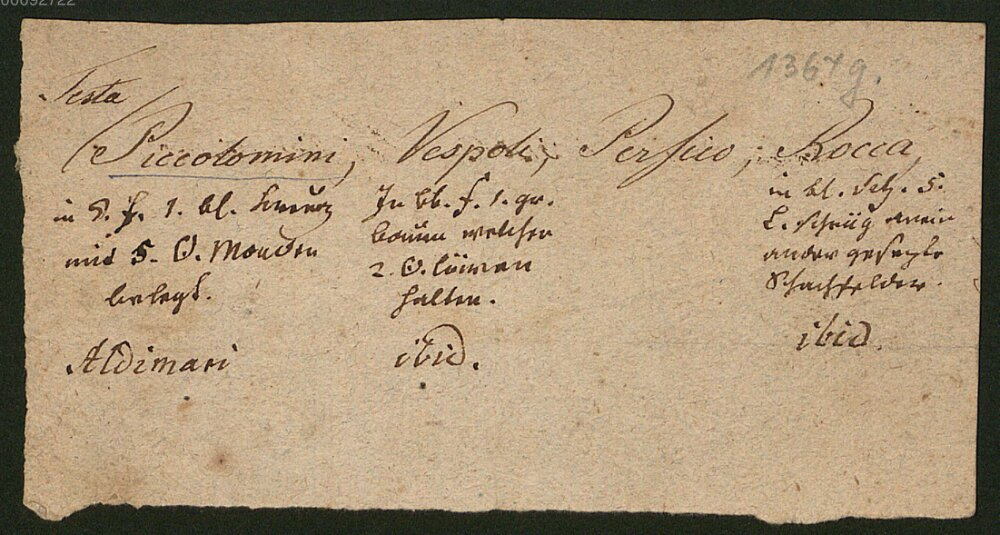 00092722
1367 g.
Testa
Piccolomini, Vespoli; Persico; Rocca,
in S. f. 1. bl. Kreuz
mit 5. G. Monden
belegt.
Aldimari
In bl. f. 1. gr.
baum welchen
2 G. löwen
halten.
ibid.
in bl. 5.
L. schräg anein
ander gesezte
Schachfelder.
ibid.